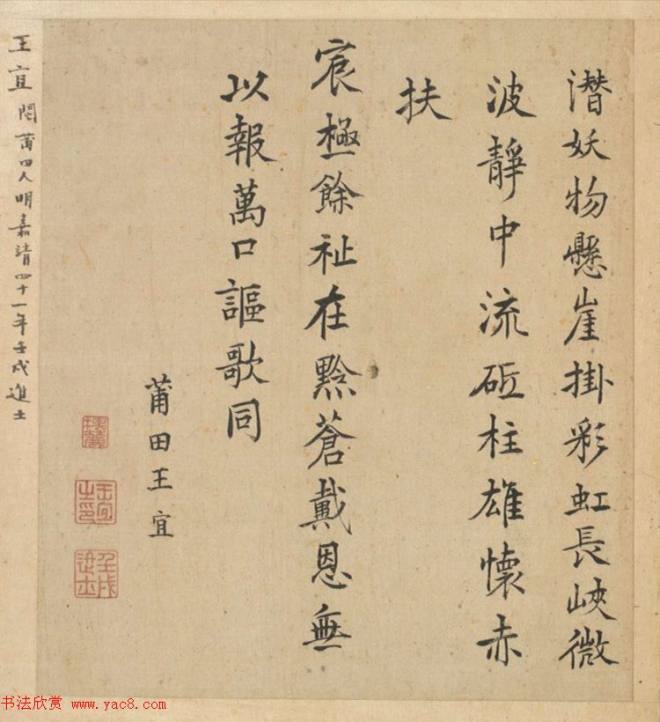 潛妖物懸崖掛彩虹長峽微
波靜中流砥柱雄懷赤
扶
宸極餘祉在黔蒼戴恩無
以報萬口謳歌同
莆田王宜
王宜之印
壬戌進士
王宜閩莆田人明嘉靖四十一年壬戌進士
书法欣赏 www.yac8.com